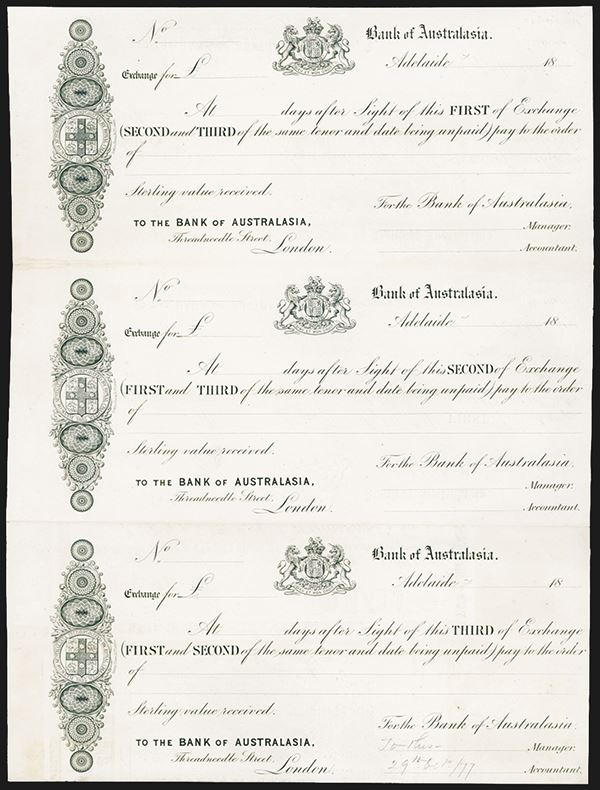 No
Bank of Australasia.
Adelaide 18
Exchange for £
At days after Sight of this FIRST of Exchange
(SECOND and THIRD of the same tenor and date being unpaid) pay to the order
of
Sterling value received.
For the Bank of Australasia.
TO THE BANK OF AUSTRALASIA,
Manager.
Threadneedle Street.
London.
Accountant.
No
Bank of Australasia.
Adelaide 18
Exchange for £
At days after Sight of this SECOND of Exchange
(FIRST and THIRD of the same tenor and date being unpaid) pay to the order
of
Sterling value received.
For the Bank of Australasia.
TO THE BANK OF AUSTRALASIA,
Manager.
Threadneedle Street.
London.
Accountant.
No
Bank of Australasia.
Adelaide 18
Exchange for £
At days after Sight of this THIRD of Exchange
(FIRST and SECOND of the same tenor and date being unpaid) pay to the order
of
Sterling value received.
For the Bank of Australasia.
TO THE BANK OF AUSTRALASIA,
To
Manager.
Threadneedle Street.
London.
29th Octr /77
Accountant.